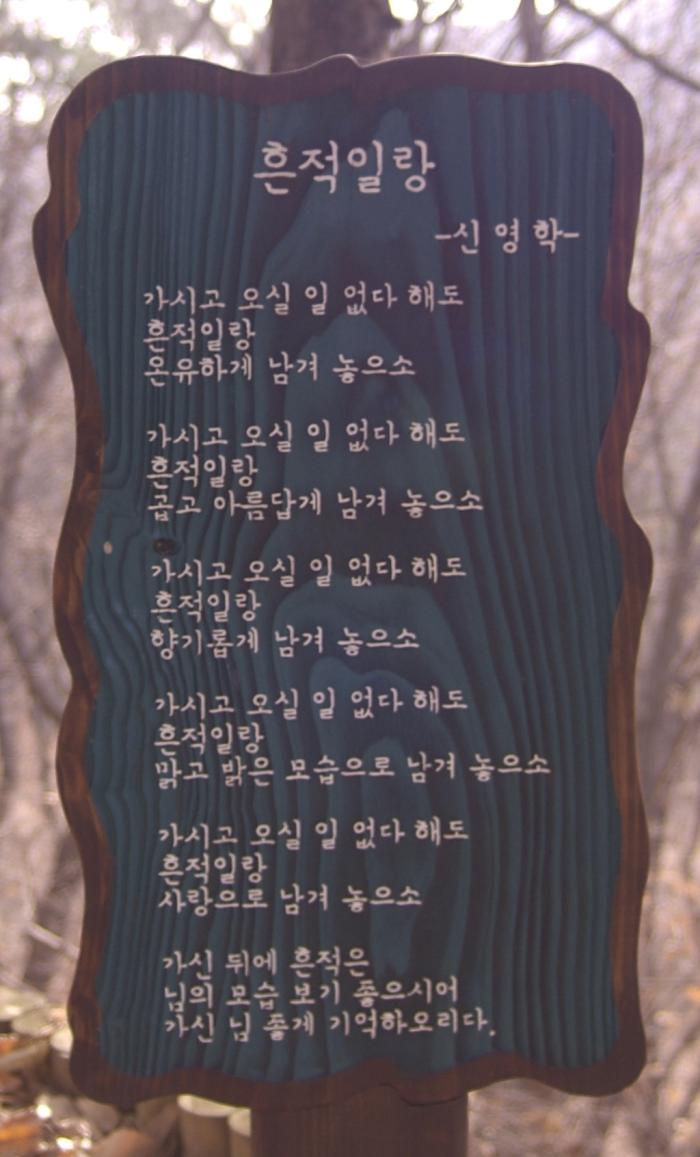 흔적일랑
-신 영 학-
가시고 오실 일 없다 해도
흔적일랑
온유하게 남겨 놓으소
가시고 오실 일 없다 해도
흔적일랑
곱고 아름답게 남겨 놓으소
가시고 오실 일 없다 해도
흔적일랑
향기롭게 남겨 놓으소
가시고 오실 일 없다 해도
흔적일랑
맑고 밝은 모습으로 남겨 놓으소
가시고 오실 일 없다 해도
흔적일랑
사랑으로 남겨 놓으소
가신 뒤에 흔적은
님의 모습 보기 좋으시어
가신 님 좋게 기억하오리다.